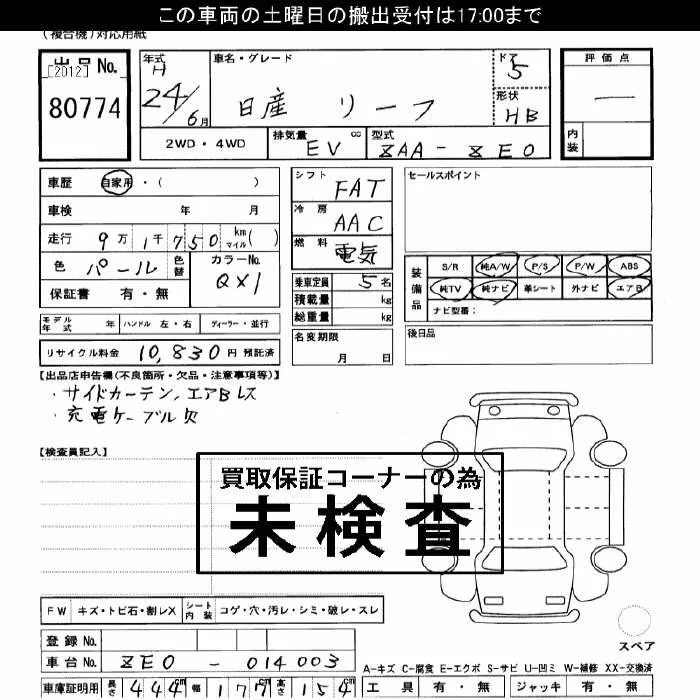 この車両の土曜日の搬出受付は17:00まで
(複合機)対応用紙
出品No.
[2012]
80774
年式 H 24/6月
車名・グレード 日産 リーフ
ドア 5
形状 HB
2WD・4WD
排気量 EV cc
型式 ZAA-ZE0
評価点
—
内装
車歴 自家用・( )
車検 年 月
走行 9万1千750 km マイル( )
色 パール 色替 カラーNo. QX1
保証書 有・無
シフト FAT
冷房 AAC
燃料 電気
乗車定員 5名
積載量 kg
総重量 kg
セールスポイント
装備品
S/R 純A/W P/S P/W ABS
純TV 純ナビ 革シート 外ナビ エアB
ナビ型番:
モデル年式 年 ハンドル 左・右 ディーラー・並行
リサイクル料金 10,830円 預託済
名変期限
月 日
後日品
【出品店申告欄(不良箇所・欠品・注意事項等)】
・サイドカーテン,エアBレス
・充電ケーブル欠
【検査員記入】
買取保証コーナーの為
未検査
FW キズ・トビ石・割レX シート内装 コゲ・穴・汚レ・シミ・破レ・スレ
登録No.
車台No. ZE0-014003
車庫証明用 長さ 444cm 幅 177cm 高さ 154cm
スペア
A-キズ C-腐食 E-エクボ S-サビ U-凹ミ W-補修 XX-交換済
工具 有・無 ジャッキ 有・無